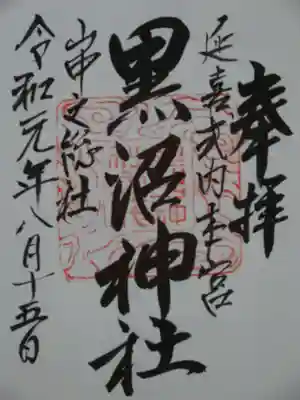 奉拝
延喜式内本宮
黒沼神社
総社
令和元年八月十五日